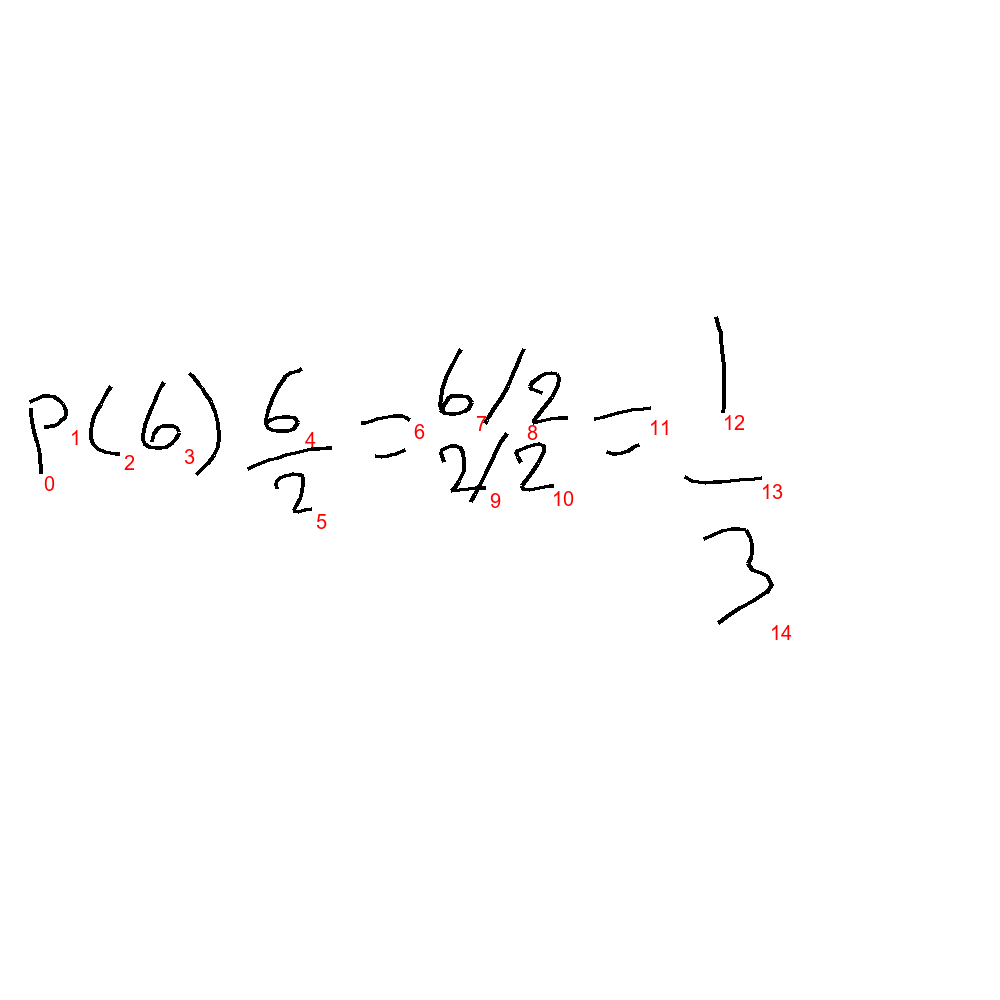 P(6) 6/2 = 6/2 / 2/2 = 1/3
0 1 2 3 4 5 6 7 8 9 10 11 12 13 14